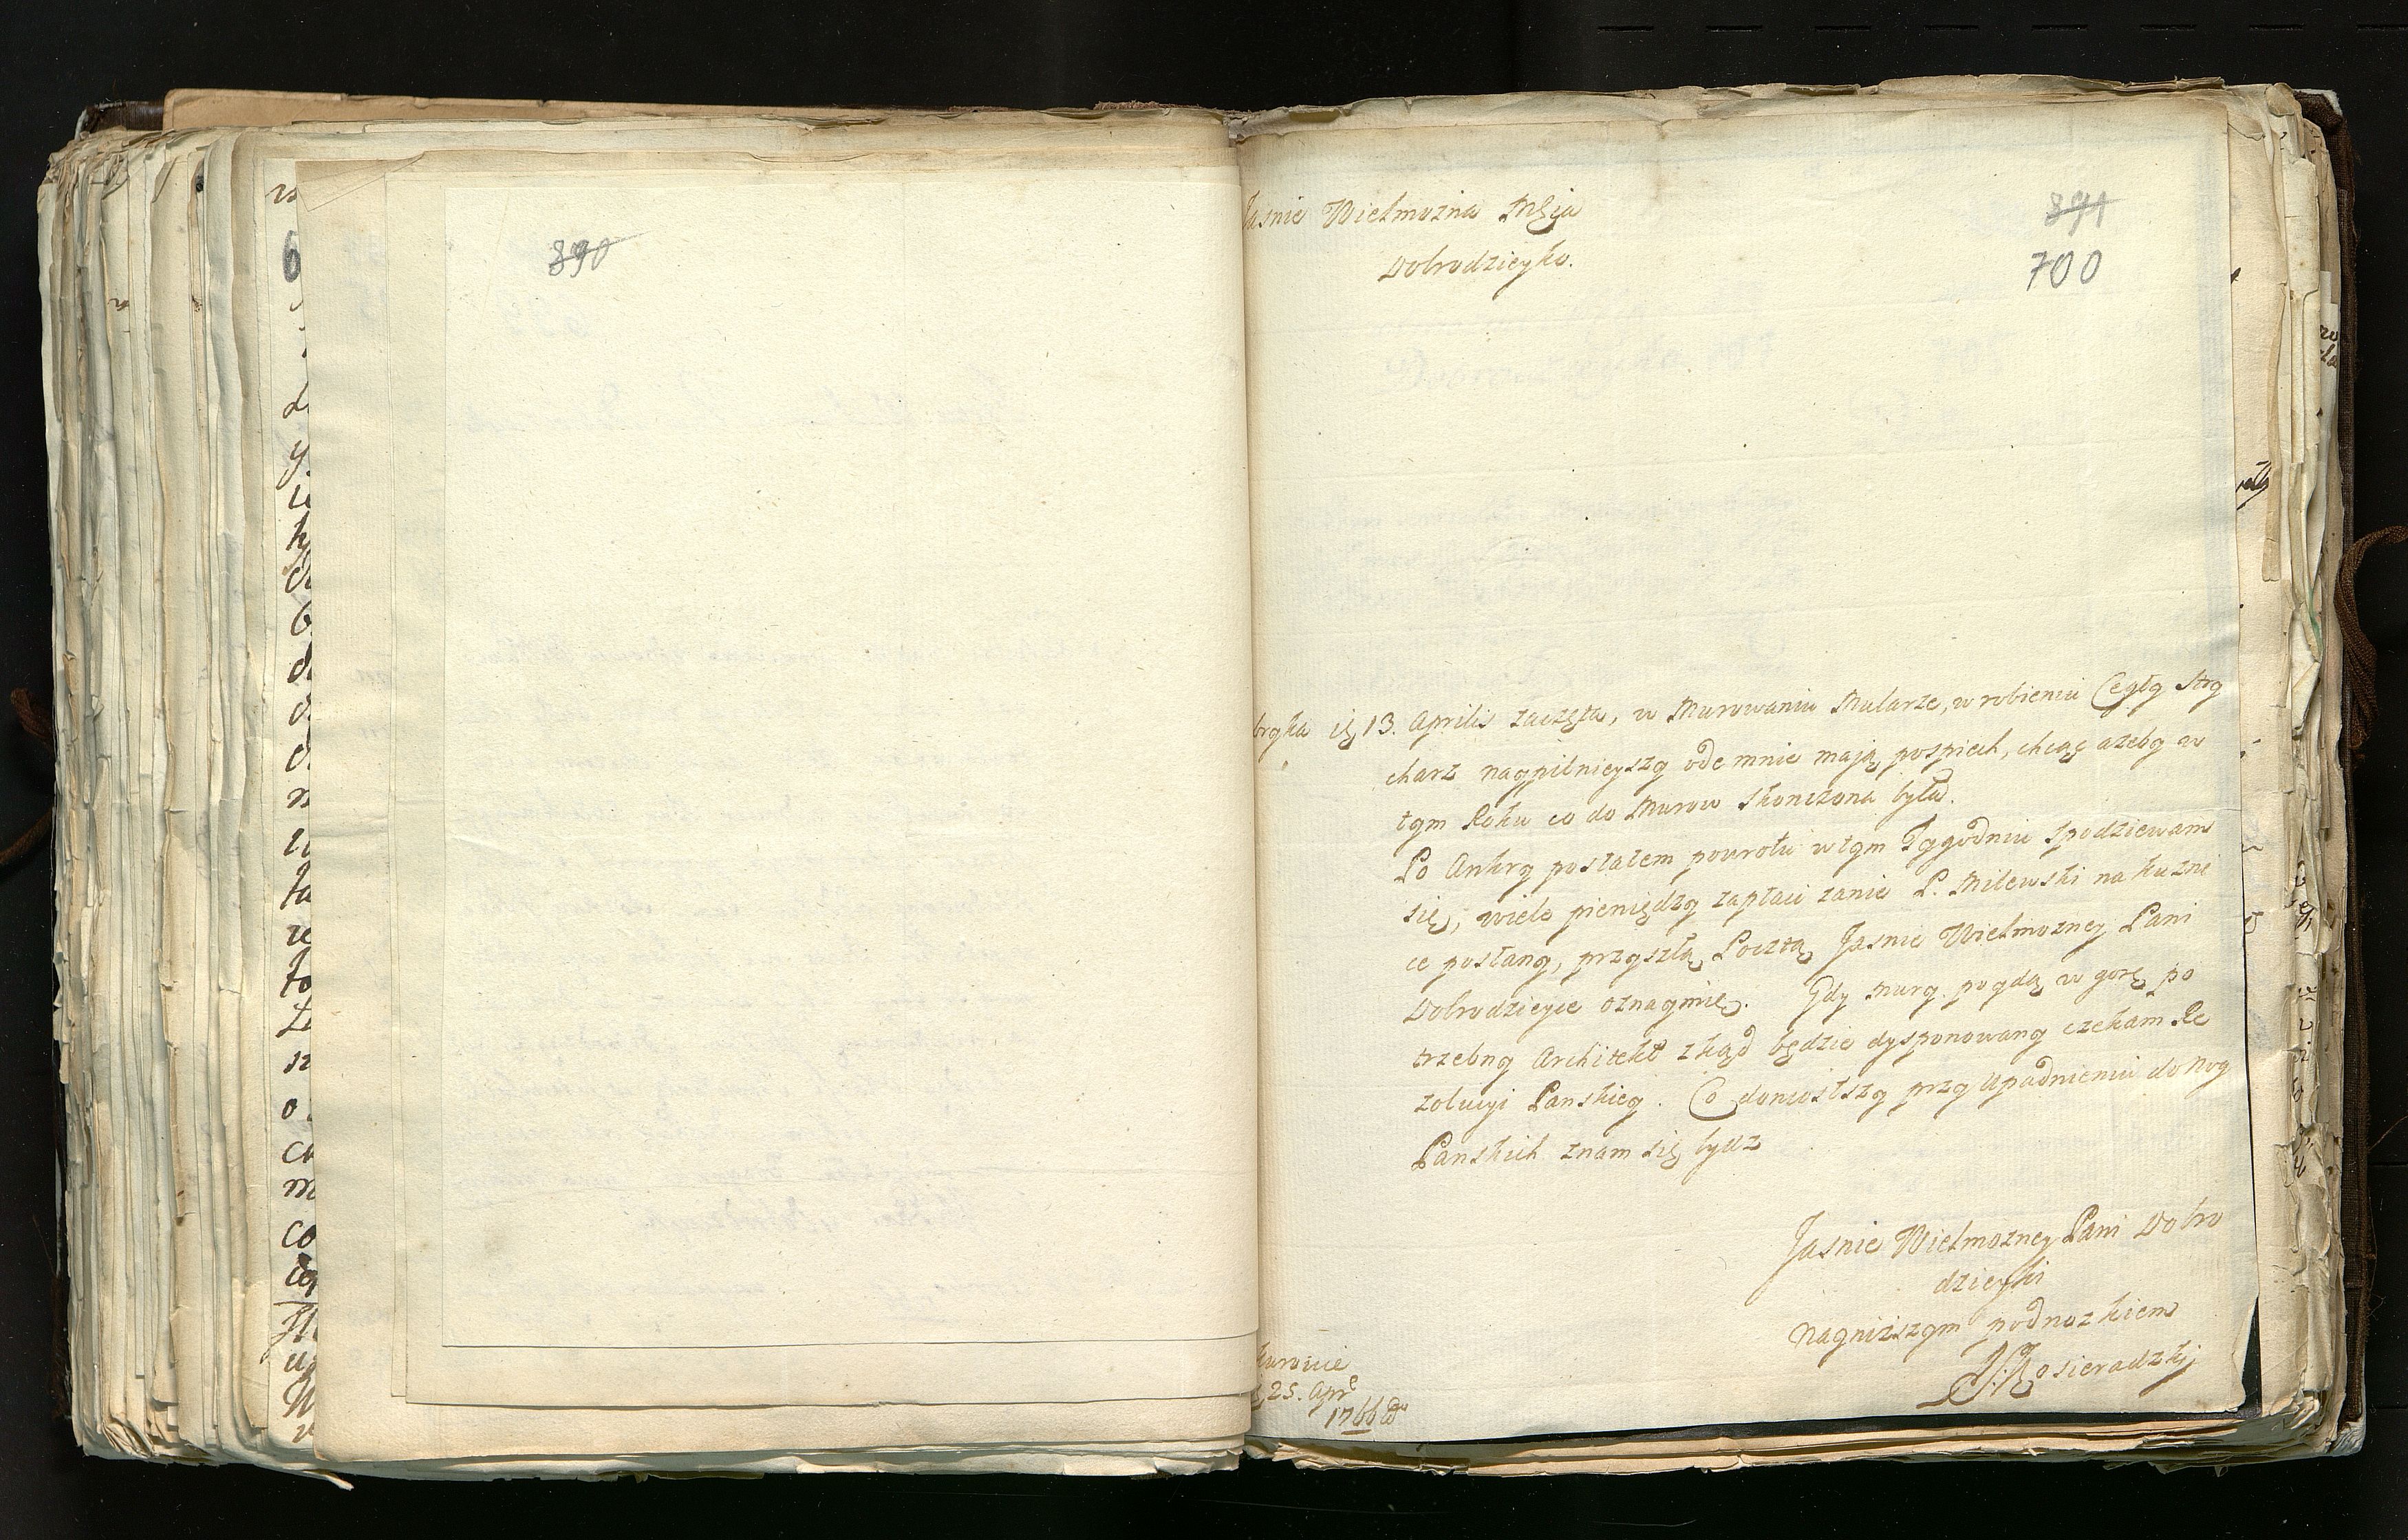 890
Jasnie Wielmozna Mscia
Dobrodzieyko.
891
700
bryka ię 13. Aprilis zaczęta, w Murowaniu Mularze, w robieniu Cegły Stry
charz naypilnieyszy ode mnie mają pospiech, chcąc azeby w
tym Roku co do Murow skonczona była.
Po Ankry posłałem powrotu w tym Tygodniu spodziewam
się, wiele pieniędzy zapłaci zanie P. Milewski na kuzni
ce posłany, przyszłą Pocztą Jasnie Wielmozney Pani
Dobrodzieyce oznaymie. Gdy mury poydą w gorę po
trzebny Architekt zkąd będzie dysponowany czekam Re
zolucyi Panskiey. Co doniosłszy przy Upadnieniu do Nog
Panskich znam się bydz
Jasnie Wielmozney Pani Dobro
dzieyki
Nayniższym podnozkiem
J. Kosieradzkj
kurowie
25. Apr
1766